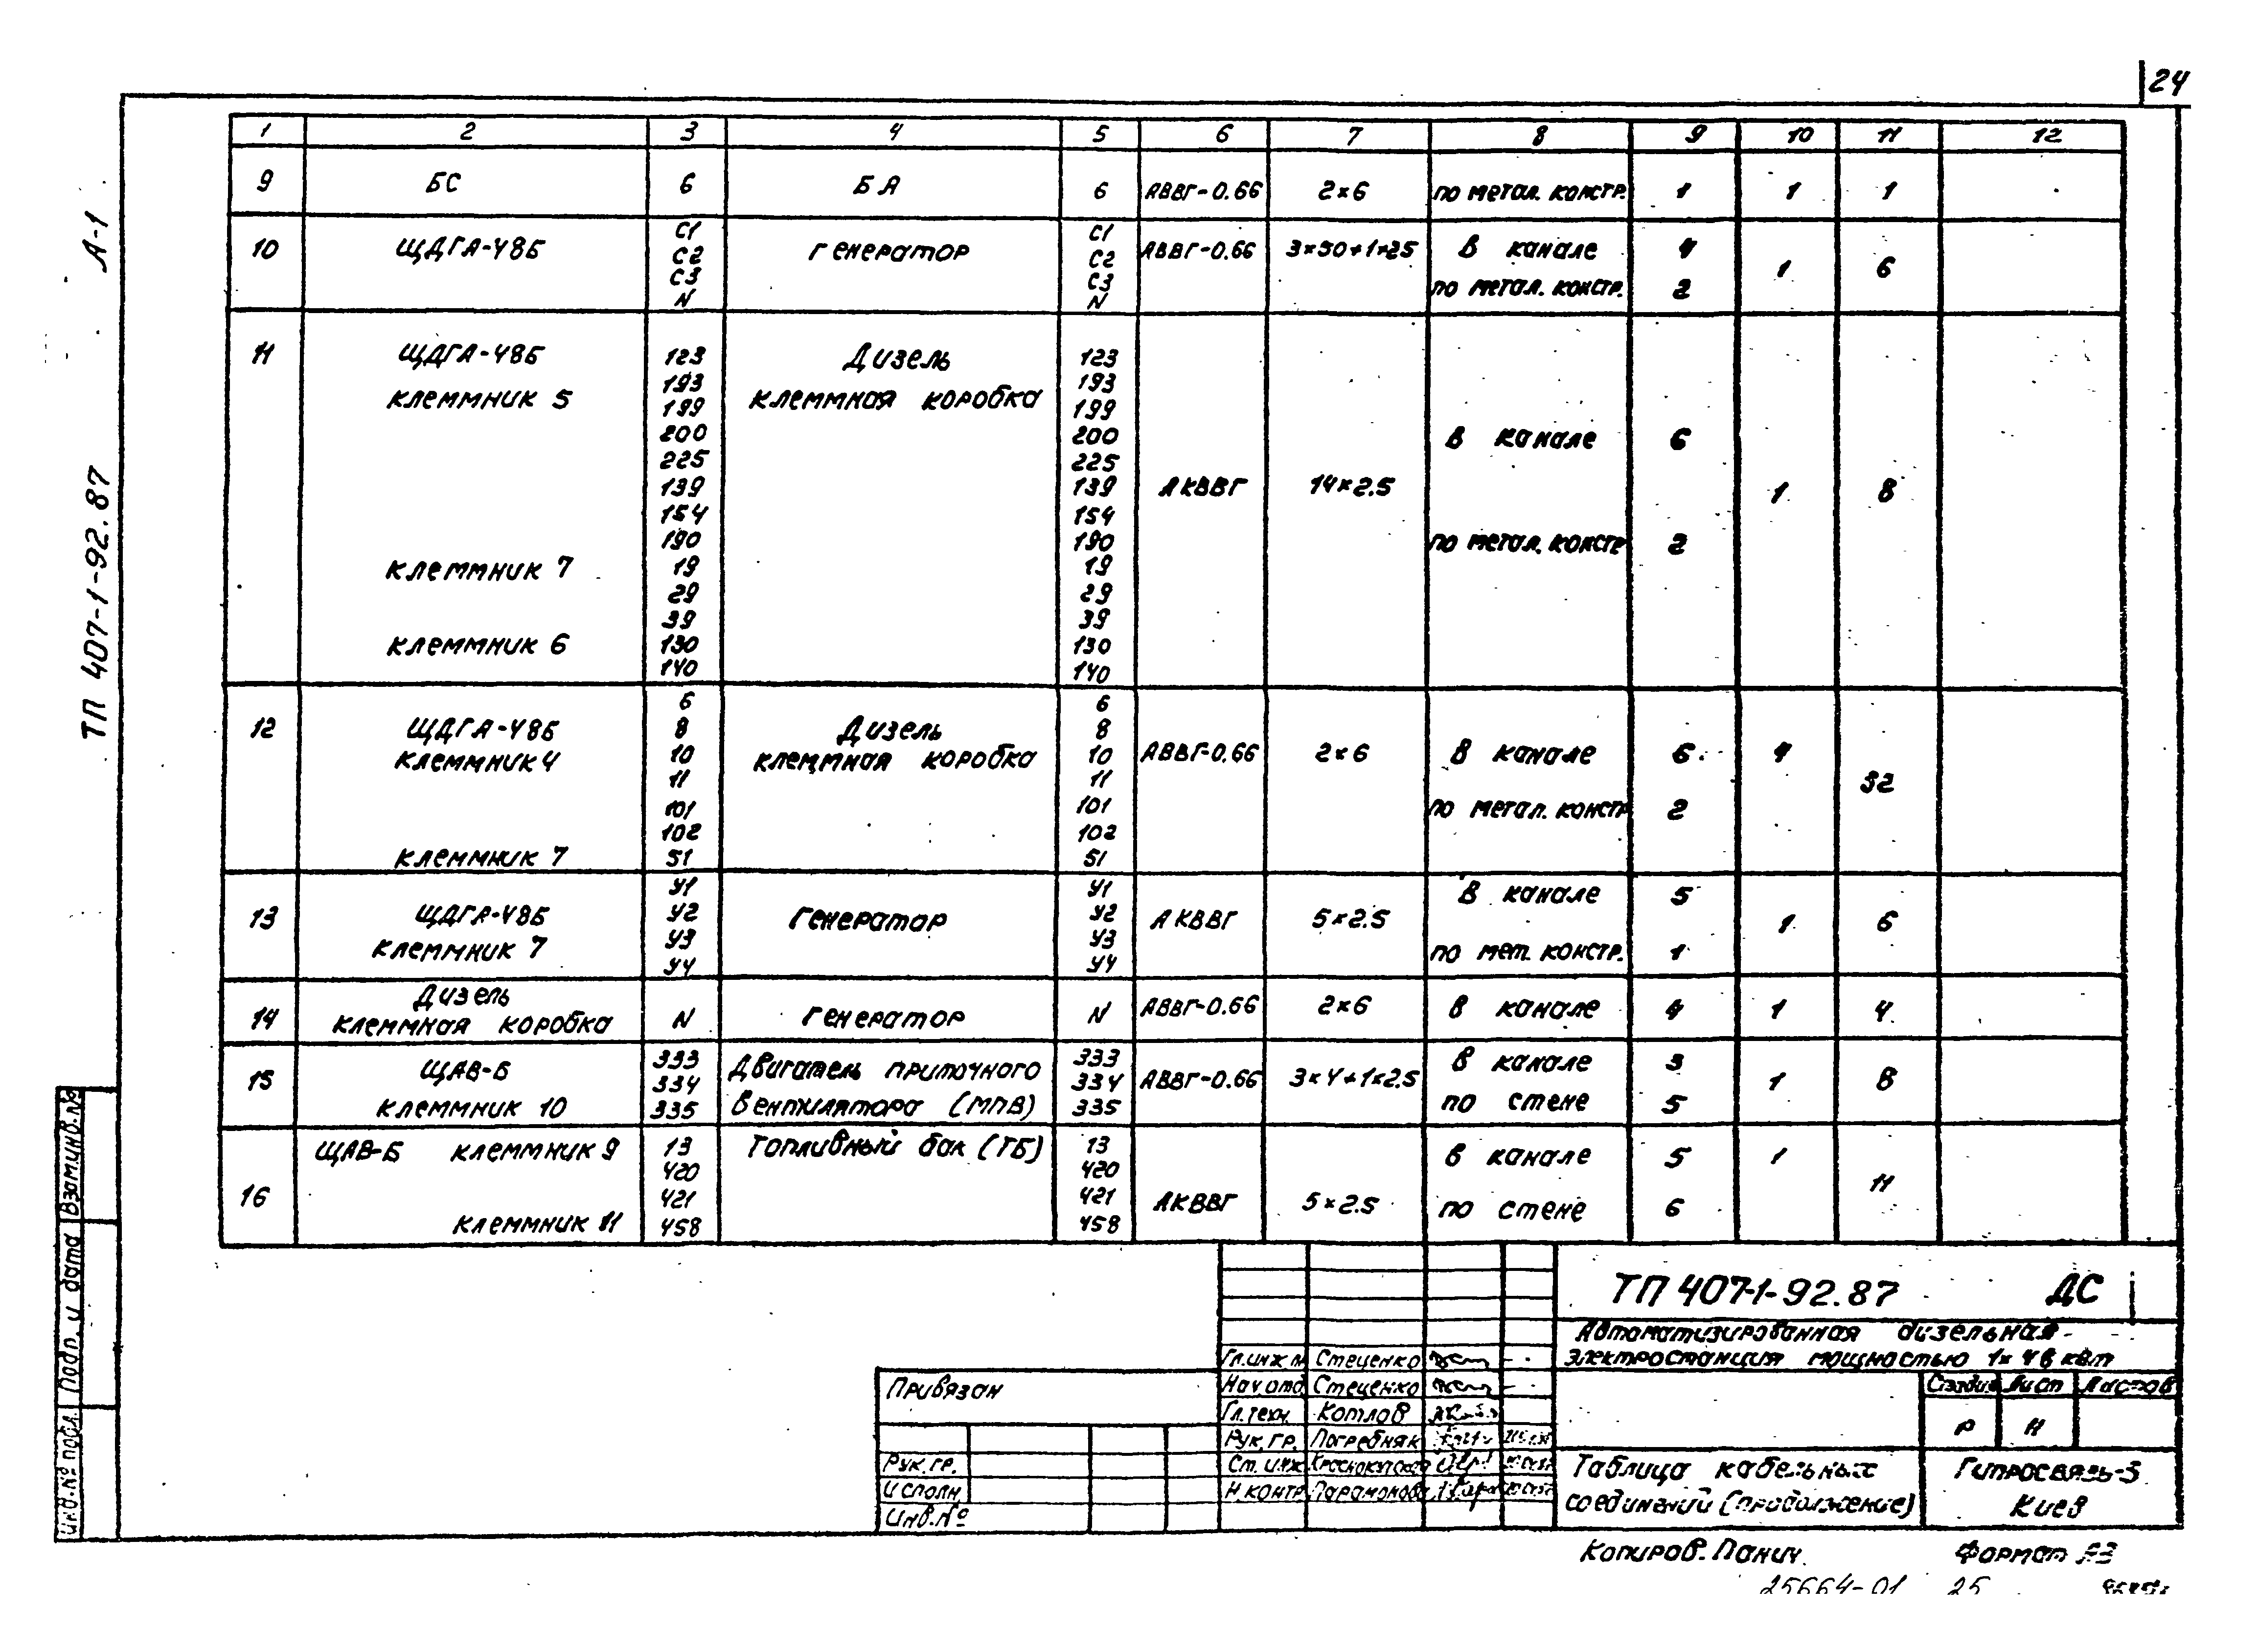 24
А-1
ТП 407-1-92.87
1 2 3 4 5 6 7 8 9 10 11 12
9 БС 6 БА 6 АВВГ-0.66 2×6 по метал. констр. 1 1 1
10 ЩДГА-48Б С1 С2 С3 N Генератор С1 С2 С3 N АВВГ-0.66 3×50+1×25 в канале 4 1 6
по метал. констр. 2
11 ЩДГА-48Б 123 Дизель 123
193 193
клеммник 5 199 клеммная коробка 199
200 200 в канале 6
225 225
139 139 АКВВГ 14×2.5 1 8
154 154
190 190 по метал. констр 2
клеммник 7 19 19
29 29
39 39
клеммник 6 130 130
140 140
6 6
12 ЩДГА-48Б 8 Дизель 8
клеммник 4 10 клеммная коробка 10 АВВГ-0.66 2×6 в канале 6 4
11 11 32
101 101 по метал. констр 2
102 102
клеммник 7 51 51
У1 У1 в канале 5
13 ЩДГА-48Б У2 Генератор У2 АКВВГ 5×2.5 1 6
клеммник 7 У3 У3 по мет. констр. 1
У4 У4
Дизель
14 клеммная коробка N Генератор N АВВГ-0.66 2×6 в канале 4 1 4
15 ЩАВ-Б 333 Двигатель приточного 333 в канале 3
334 334 АВВГ-0.66 3×4+1×2.5 1 8
клеммник 10 335 вентилятора (МПВ) 335 по стене 5
ЩАВ-Б клеммник 9 13 Топливный бак (ТБ) 13 в канале 5 1
420 420
16 421 421 АКВВГ 5×2.5 по стене 6 11
клеммник 11 458 458
ТП 407-1-92.87 ДС
Автоматизированная дизельная
электростанция мощностью 1×48 кВт
Гл.инж.п Стеценко
Нач.отд Стеценко
Гл.техн. Котлов
Рук.гр. Погребняк
Ст.инж. Краснокутская
Н.контр. Парамонова
Стадия Лист Листов
Р 11
Таблица кабельных
соединений (продолжение)
Гипросвязь-3
Киев
Привязан
Рук.гр.
Исполн.
Инв.№
Взам.инв.№
Подп. и дата
Инв.№ подл.
Копиров. Панич
Формат А3
25664-01 25